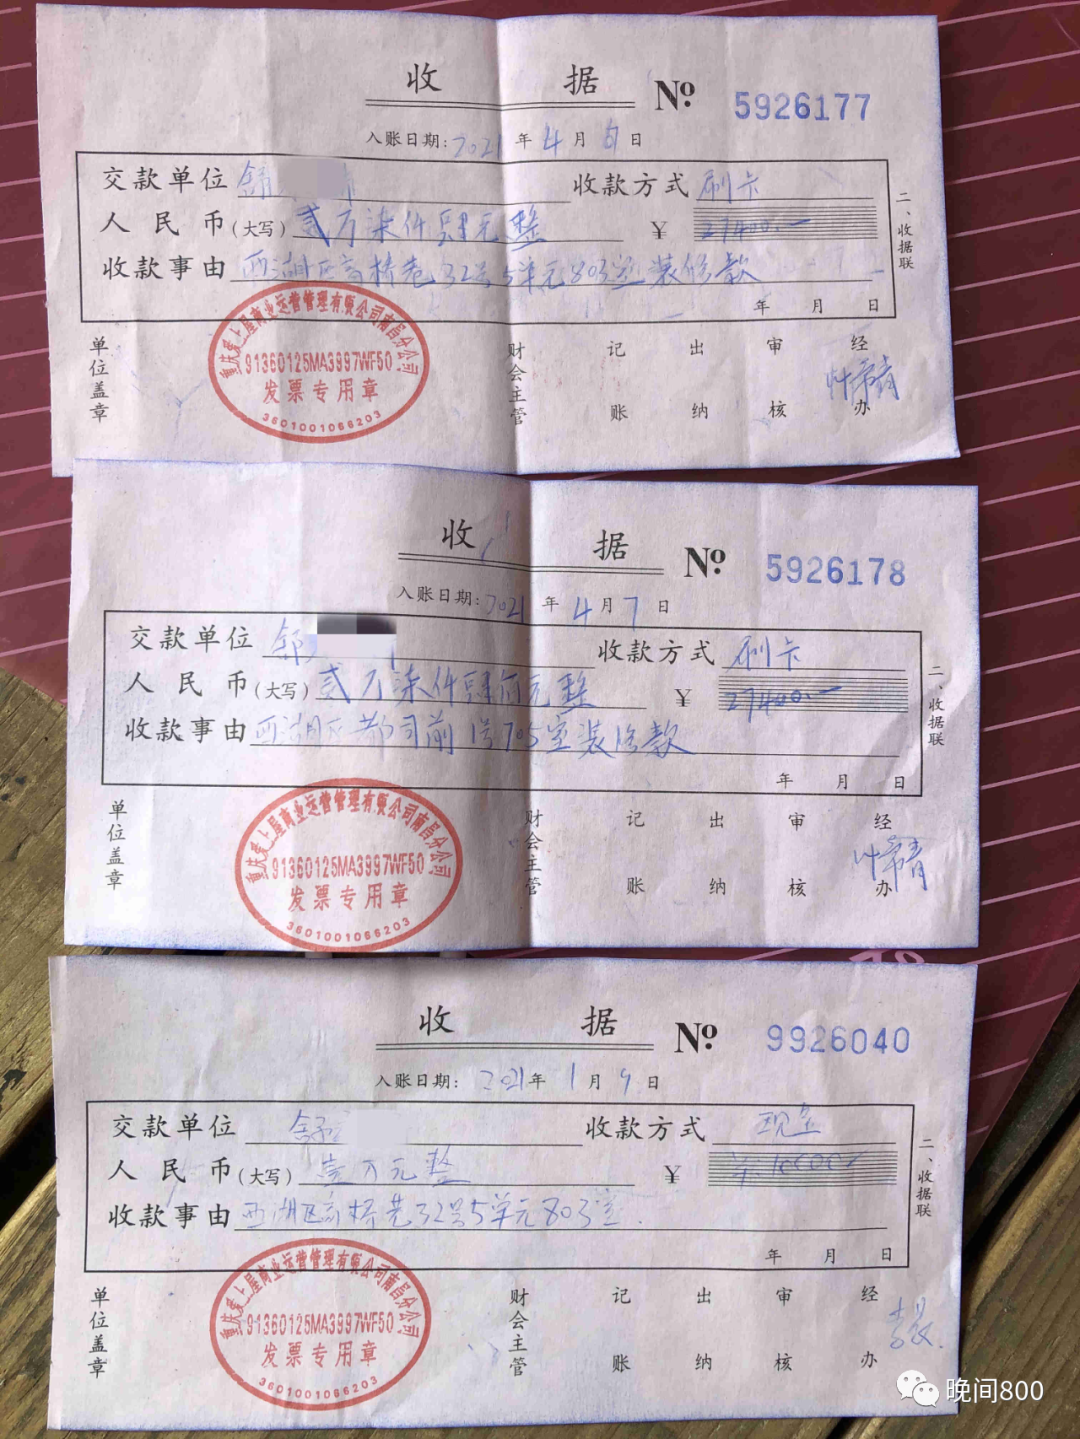 收 据 № 5926177
入账日期: 2021 年 4 月 6 日
交款单位 舒 收款方式 刷卡
人民币(大写) 贰万柒仟肆元整 ¥ 27400.—
收款事由 西湖区高桥巷32号5单元803室装修款
年 月 日
二、收据联
单位盖章 财会主管 记账 出纳 审核 经办
重庆爱上屋商业运营管理有限公司南昌分公司
91360125MA3997WF50
发票专用章
3601001066203
收 据 № 5926178
入账日期: 2021 年 4 月 7 日
交款单位 舒 收款方式 刷卡
人民币(大写) 贰万柒仟肆佰元整 ¥ 27400.—
收款事由 西湖区都司前1号705室装修款
年 月 日
二、收据联
单位盖章 财会主管 记账 出纳 审核 经办
重庆爱上屋商业运营管理有限公司南昌分公司
91360125MA3997WF50
发票专用章
3601001066203
收 据 № 9926040
入账日期: 2021 年 1 月 9 日
交款单位 舒 收款方式 现金
人民币(大写) 壹万元整 ¥ 10000
收款事由 西湖区高桥巷32号5单元803室.
年 月 日
二、收据联
单位盖章 财会主管 记账 出纳 审核 经办
重庆爱上屋商业运营管理有限公司南昌分公司
91360125MA3997WF50
发票专用章
3601001066203
晚间800